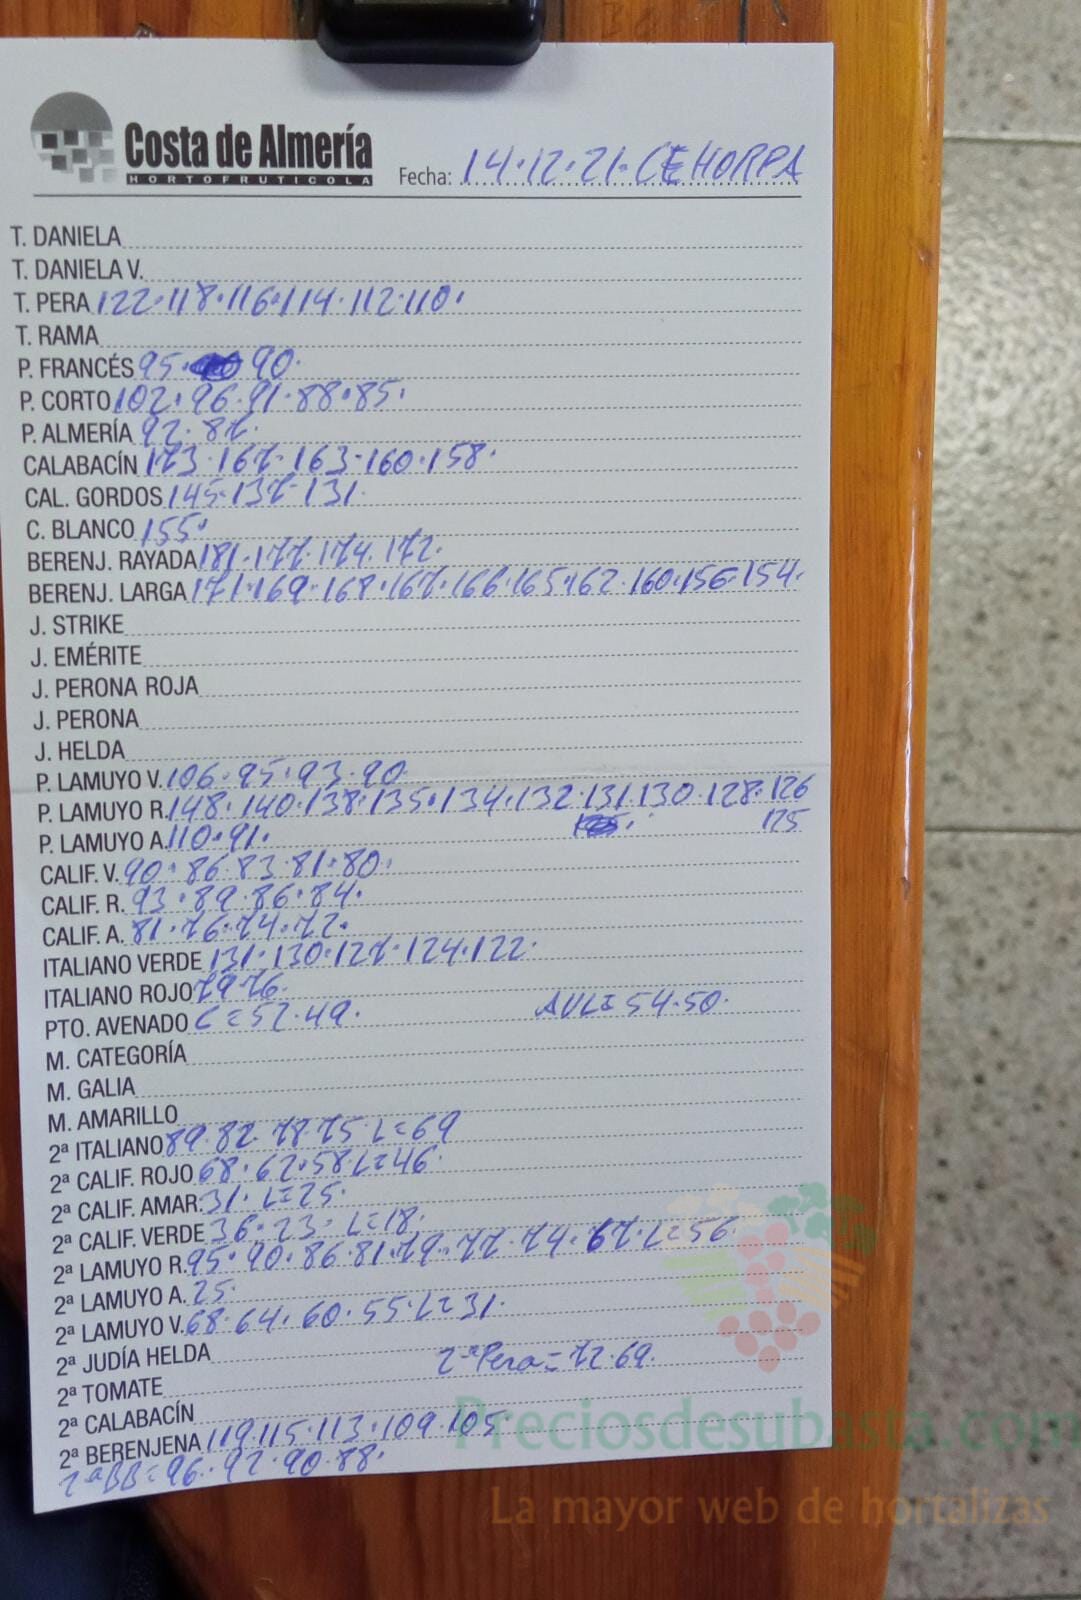 Costa de Almería
HORTOFRUTICOLA
Fecha: 14.12.21. CEHORPA
T. DANIELA
T. DANIELA V.
T. PERA 122.118.116.114.112.110.
T. RAMA
P. FRANCÉS 95. 90.
P. CORTO 102.96.91.88.85.
P. ALMERÍA 92.87.
CALABACÍN 173.167.163.160.158.
CAL. GORDOS 145.137.131.
C. BLANCO 155.
BERENJ. RAYADA 181.177.174.172.
BERENJ. LARGA 171.169.168.167.166.165.162.160.156.154.
J. STRIKE
J. EMÉRITE
J. PERONA ROJA
J. PERONA
J. HELDA
P. LAMUYO V. 106.95.93.90.
P. LAMUYO R. 148.140.138.135.134.132.131.130.128.126
125
P. LAMUYO A. 110.91.
CALIF. V. 90.86.83.81.80.
CALIF. R. 93.89.86.84.
CALIF. A. 81.76.74.72.
ITALIANO VERDE 131.130.127.124.122.
ITALIANO ROJO 79.76.
PTO. AVENADO C=52.49. AVL=54.50.
M. CATEGORÍA
M. GALIA
M. AMARILLO
2ª ITALIANO 89.82.78.75.L=69
2ª CALIF. ROJO 68.62.58.L=46.
2ª CALIF. AMAR. 31. L=25.
2ª CALIF. VERDE 36.23. L=18.
2ª LAMUYO R. 95.90.86.81.79.77.74.67.L=56.
2ª LAMUYO A. 25.
2ª LAMUYO V. 68.64.60.55.L=31.
2ª JUDÍA HELDA
2ªPera=72.69.
2ª TOMATE
2ª CALABACÍN
2ª BERENJENA 119.115.113.109.105
2ªBB=96.92.90.88.
Preciosdesubasta.com
La mayor web de hortalizas